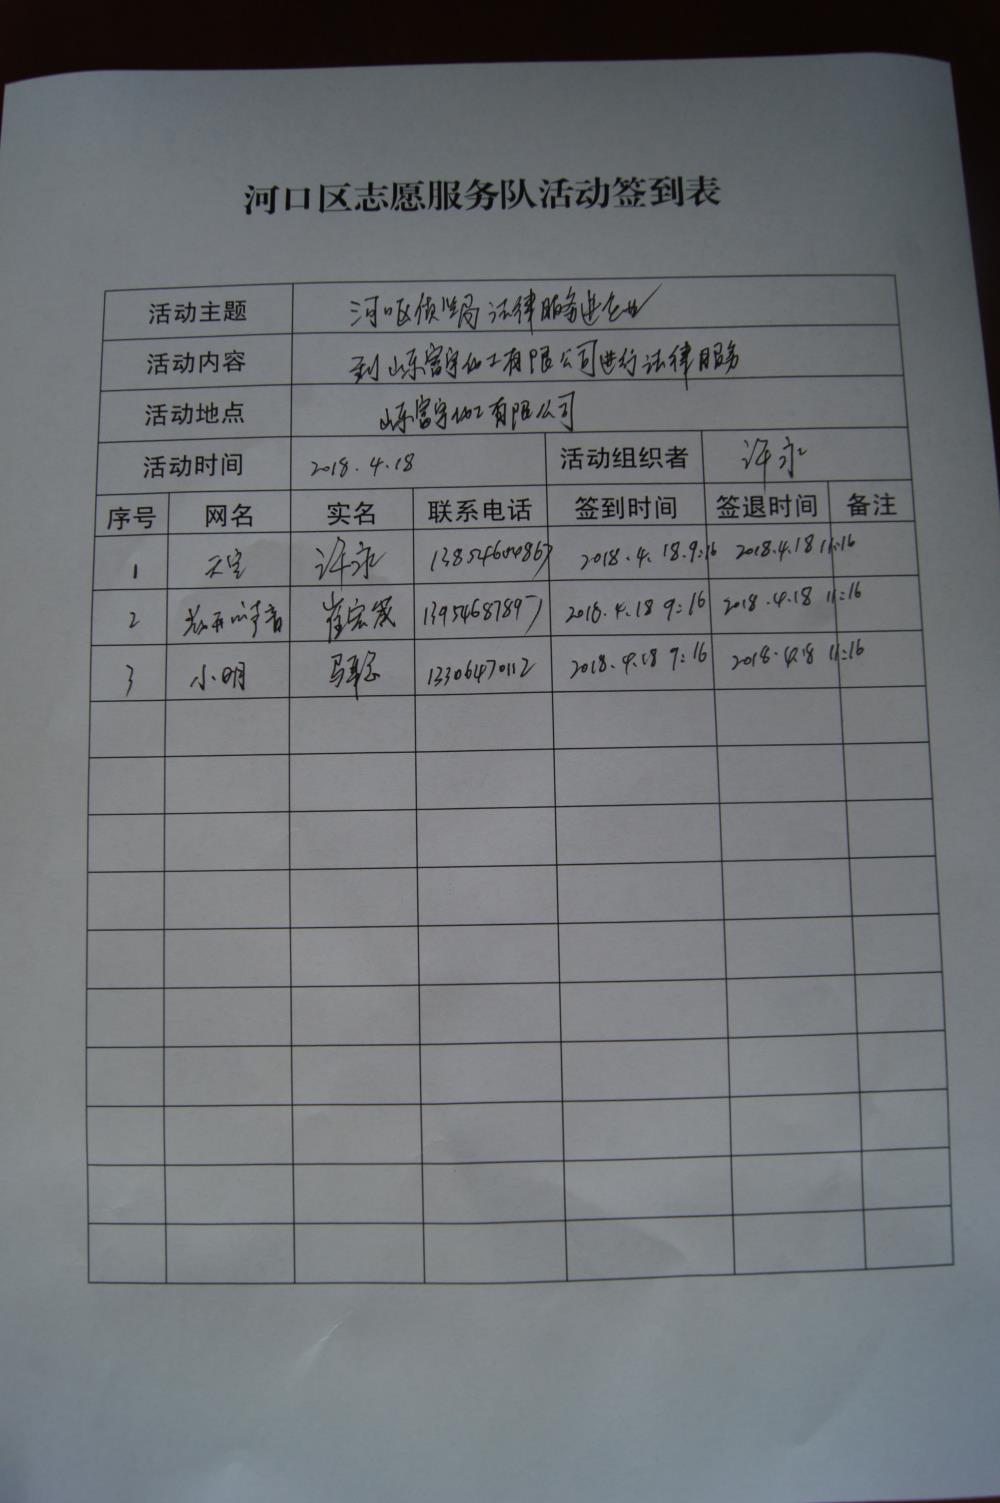 河口区志愿服务队活动签到表
活动主题 河口区侦监局法律服务进企业
活动内容 到山东富宇化工有限公司进行法律服务
活动地点 山东富宇化工有限公司
活动时间 2018.4.18 活动组织者 许永
序号 网名 实名 联系电话 签到时间 签退时间 备注
1 天空 许永 2018.4.18.9:16 2018.4.18 11:16
2 崔宏 13954687897 2018.4.18 9:16 2018.4.18 11:16
3 小明 13306470112 2018.4.18 9:16 2018.4.18 11:16